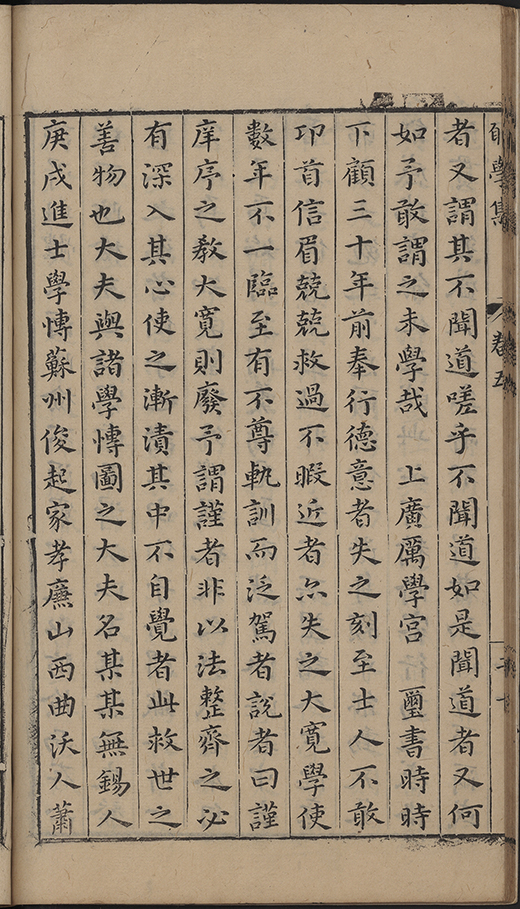 學集 卷五
者又謂其不聞道嗟乎不聞道如是聞道者又何
如予敢謂之未學哉 上廣厲學宫 璽書時時
下顧三十年前奉行德意者失之刻至士人不敢
卬首信眉兢兢救過不暇近者尒失之大寛學使
數年不一臨至有不尊軌訓而泛駕者說者曰謹
庠序之教大寛則廢予謂謹者非以法整齊之必
有深入其心使之漸漬其中不自覺者此救世之
善物也大夫與諸學愽圖之大夫名某某無錫人
庚戌進士學愽蘇州俊起家孝廉山西曲沃人蕭